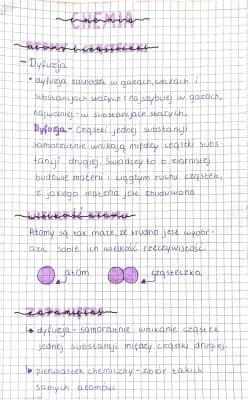 CHEMIA
atomy i cząsteczki
- Dyfuzja
• dyfuzja zachodzi w gazach, cieczach i
substancjach stałych i najszybciej w gazach,
najwolniej - w substancjach stałych.
Dyfuzja - cząstki jednej substancji
samorzutnie wnikają między cząstki subs-
tancji drugiej. Świadczy to o ziarnistej
budowie materii i ciągłym ruchu cząstek,
z jakiego materia jest zbudowana.
wielkość atomu
Atomy są tak małe, że trudno jest wyobr-
azić sobie ich wielkość rzeczywistość.
atom
cząsteczka
zapamiętaj
↳ dyfuzja - samorzutne wnikanie cząstek
jednej substancji między cząstki drugiej.
↳ pierwiastek chemiczny - zbiór takich
samych atomów.